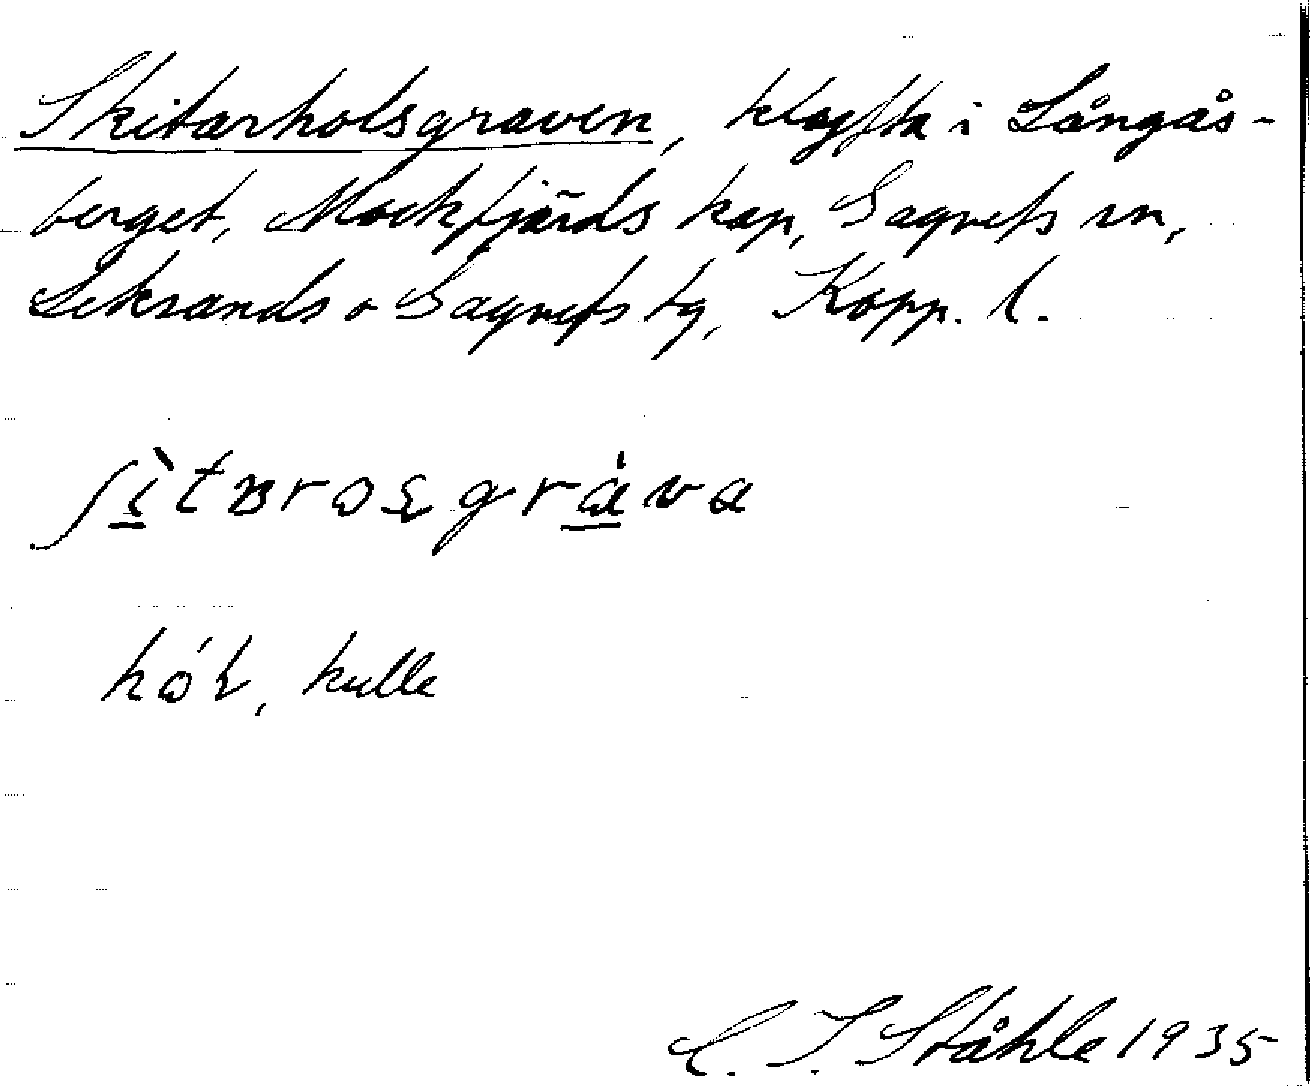 Skitarholsgraven, klyfta i Långås-
berget, Mockfjärds kap, Gagnefs sn,
Leksands o Gagnefs tg, Kopp. l.
ʃìtɐrosgràva
hól, kulle
C. I. Ståhle 1935